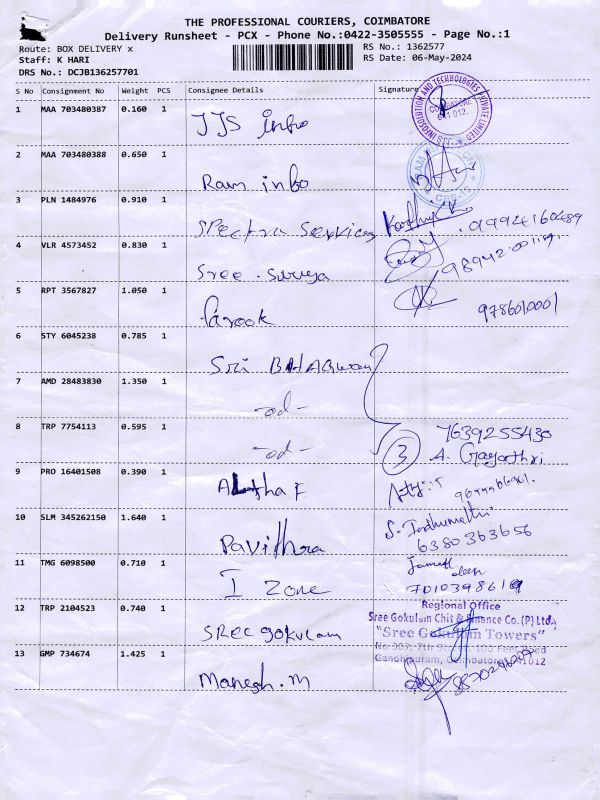 THE PROFESSIONAL COURIERS, COIMBATORE
Delivery Runsheet - PCX - Phone No.:0422-3505555 - Page No.:1
Route: BOX DELIVERY x
RS No.: 1362577
Staff: K HARI
RS Date: 06-May-2024
DRS No.: DCJB136257701
S No Consignment No Weight PCS Consignee Details Signature
INFOSOLUTION AND TECHNOLOGIES PRIVATE LIMITED
COIMBATORE
641 012.
1 MAA 703480387 0.160 1 JJS info
2 MAA 703480388 0.650 1 Ram info
CBE-12
3 PLN 1484976 0.910 1 Spectra Services
9994160489
4 VLR 4573452 0.830 1 Sree. Surya
98942
5 RPT 3567827 1.050 1 farook
9786010001
6 STY 6045238 0.785 1 Sri BHAGwan
7 AMD 28483830 1.350 1 -od-
8 TRP 7754113 0.595 1 -od-
3 7639255430
A. Gayathri
9 PRO 16401508 0.390 1
10 SLM 345262150 1.640 1 Pavithra
S. Indhumathi
6380363656
11 TMG 6098500 0.710 1 I Zone
12 TRP 2104523 0.740 1 Sree gokulam
Regional Office
Sree Gokulam Chit & Finance Co. (P) Ltd.
"Sree Gokulam Towers"
13 GMP 734674 1.425 1 Manesh.M